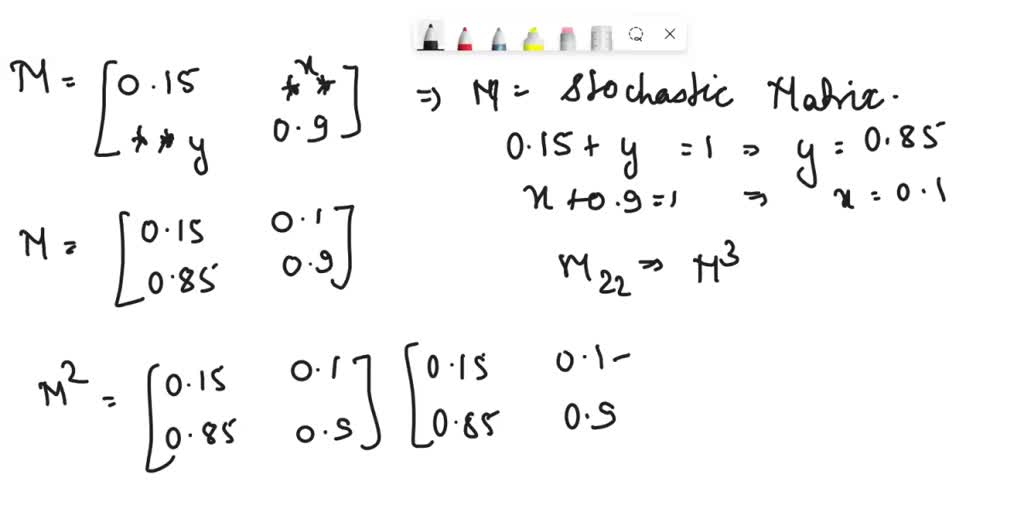 M = [0.15 **x
**y 0.9] ⇒ M = Stochastic Matrix.
0.15 + y = 1 ⇒ y = 0.85
x + 0.9 = 1 ⇒ x = 0.1
M = [0.15 0.1
0.85 0.9]
M22 ⇒ M^3
M^2 = [0.15 0.1
0.85 0.9] [0.15 0.1
0.85 0.9